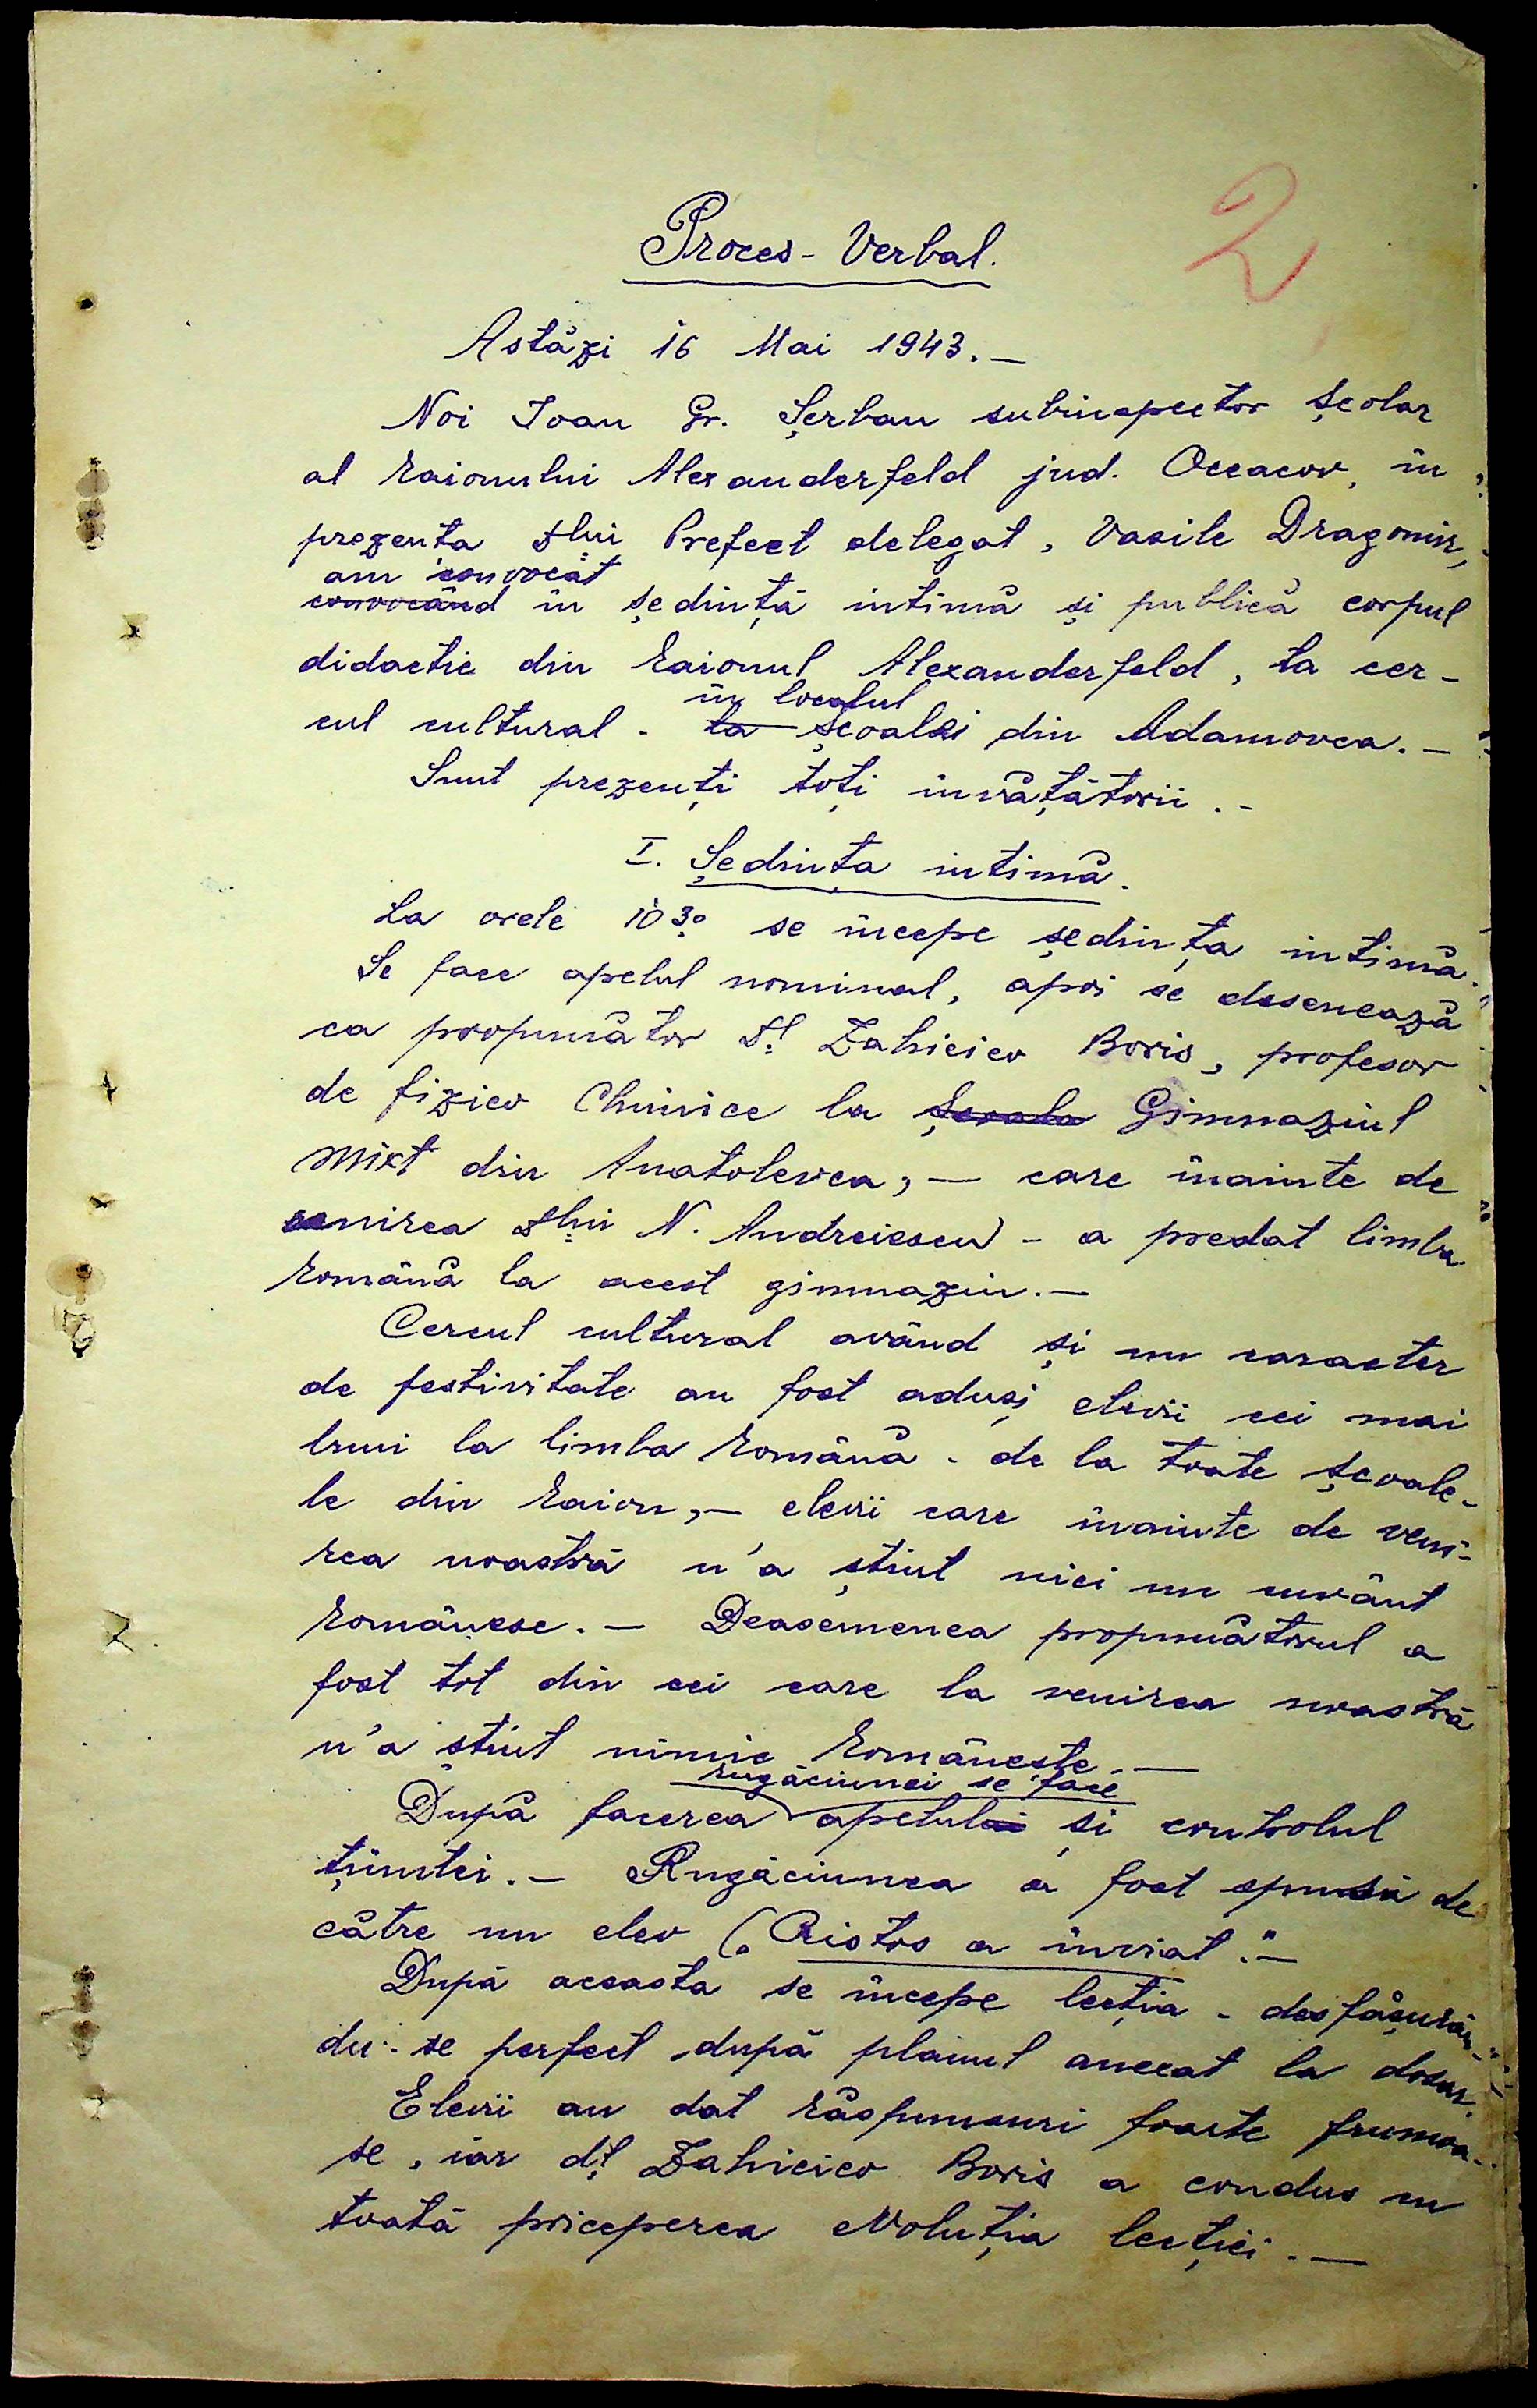 2
Proces-Verbal.
Astăzi 16 Mai 1943.—
Noi Ioan Gr. Șerban subinspector școlar
al raionului Alexanderfeld jud. Oceacov, în
prezenta Dlui Prefect delegat, Vasile Dragomir,
am convocat
convocând în ședință intimă și publică corpul
didactic din raionul Alexanderfeld, la cer-
în localul
cul cultural - la școalei din Adamovca.—
Sunt prezenți toți învățătorii.-
I. Ședința intimă.
La orele 10 30 se începe ședința intimă.
Se face apelul nominal, apoi se desenează
ca propunător Dl Zahicico Boris, profesor
de fizico Chimice la Școala Gimnaziul
mixt din Anatolevca,— care înainte de
venirea Dlui N. Andreiescu - a predat limba
română la acest gimnaziu.—
Cercul cultural având și un caracter
de festivitate au fost aduși elevii cei mai
buni la limba română - de la toate școale-
le din raion,— elevii care înainte de veni-
rea noastră n'a știut nici un cuvânt
românesc.— Deasemenea propunătorul a
fost tot din cei care la venirea noastră
n'a știut nimic românește.—
rugăciunei se face
După facerea apelului și controlul
ținutei.— Rugăciunea a fost spusă de
către un elev („Cristos a înviat".—
După aceasta se începe lecția - desfășurân-
du-se perfect după planul anexat la dosar.
Elevii au dat răspunsuri foarte frumoa-
se, iar dl Zahicico Boris a condus cu
toată priceperea evoluția lecției.—